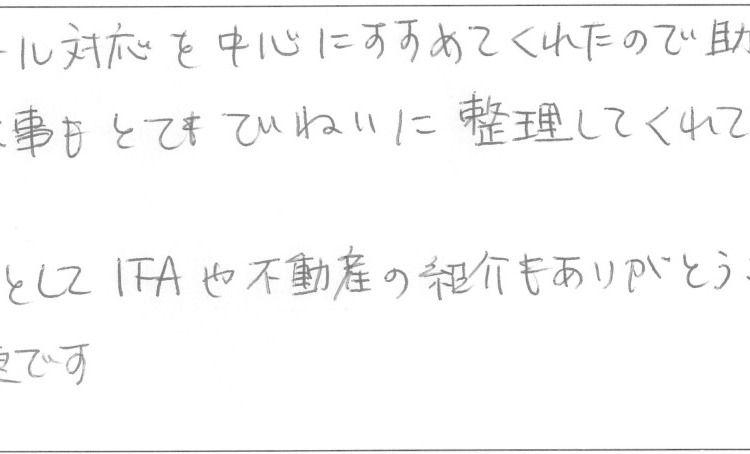 ール対応を中心にすすめてくれたので助
事もとてもていねいに整理してくれて
としてIFAや不動産の紹介もありがとう
です